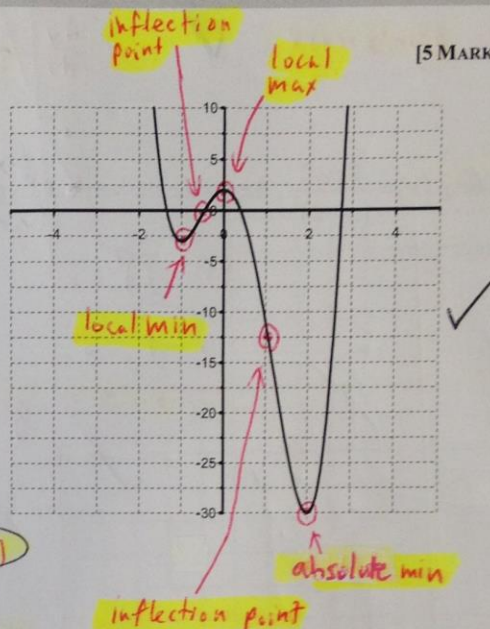 inflection
point
local
max
[5 MARK
10
5
0
-4
0
2
4
-5
local min
-10
-15
-20
-25
-30
absolute min
inflection point